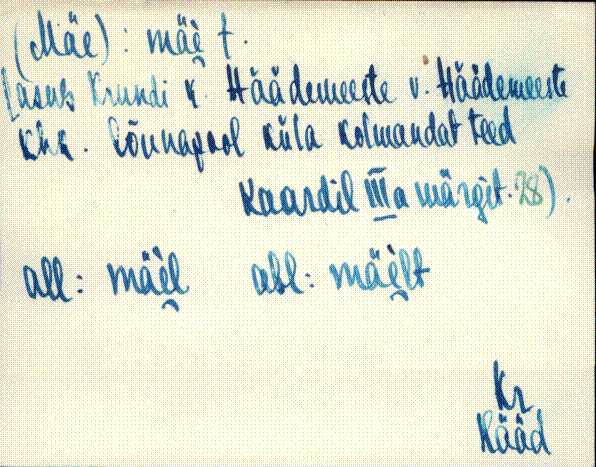 (Mäe) : mäè̯ t.
[asub Krundi k. Häädemeeste v. Häädemeeste
khk. Lõunapool küla kolmandat teed
Kaardil IIIa märgit. 28).
all: mäè̯l abl: mäè̯lt
Kr
Kääd